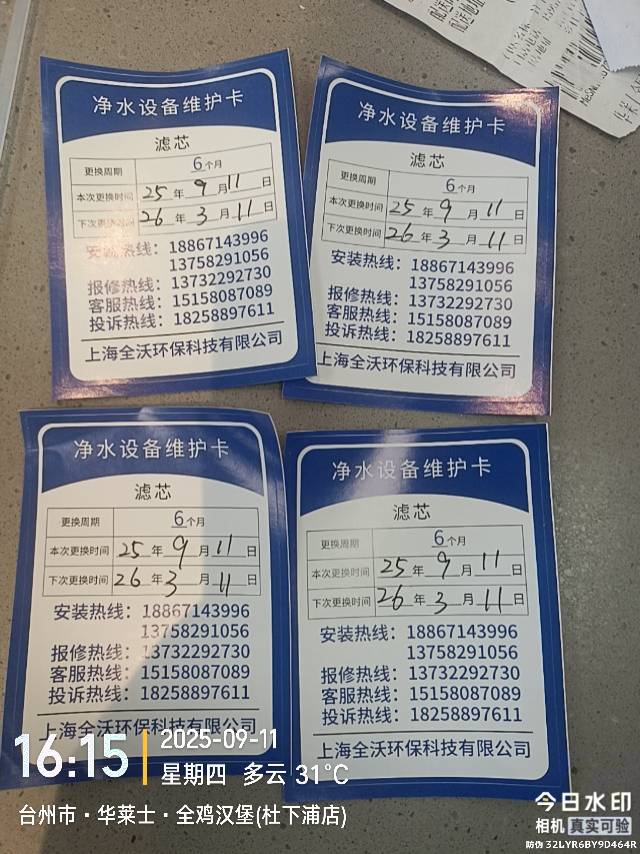 净水设备维护卡
滤芯
更换周期 6个月
本次更换时间 25年9月11日
下次更换时间 26年3月11日
安装热线：18867143996
13758291056
报修热线：13732292730
客服热线：15158087089
投诉热线：18258897611
上海全沃环保科技有限公司
净水设备维护卡
滤芯
更换周期 6个月
本次更换时间 25年9月11日
下次更换时间 26年3月11日
安装热线：18867143996
13758291056
报修热线：13732292730
客服热线：15158087089
投诉热线：18258897611
上海全沃环保科技有限公司
净水设备维护卡
滤芯
更换周期 6个月
本次更换时间 25年9月11日
下次更换时间 26年3月11日
安装热线：18867143996
13758291056
报修热线：13732292730
客服热线：15158087089
投诉热线：18258897611
上海全沃环保科技有限公司
净水设备维护卡
滤芯
更换周期 6个月
本次更换时间 25年9月11日
下次更换时间 26年3月11日
安装热线：18867143996
13758291056
报修热线：13732292730
客服热线：15158087089
投诉热线：18258897611
上海全沃环保科技有限公司
16:15
2025-09-11
星期四 多云 31℃
台州市·华莱士·全鸡汉堡(杜下浦店)
今日水印
相机 真实可验
防伪 32LYR6BY9D464R